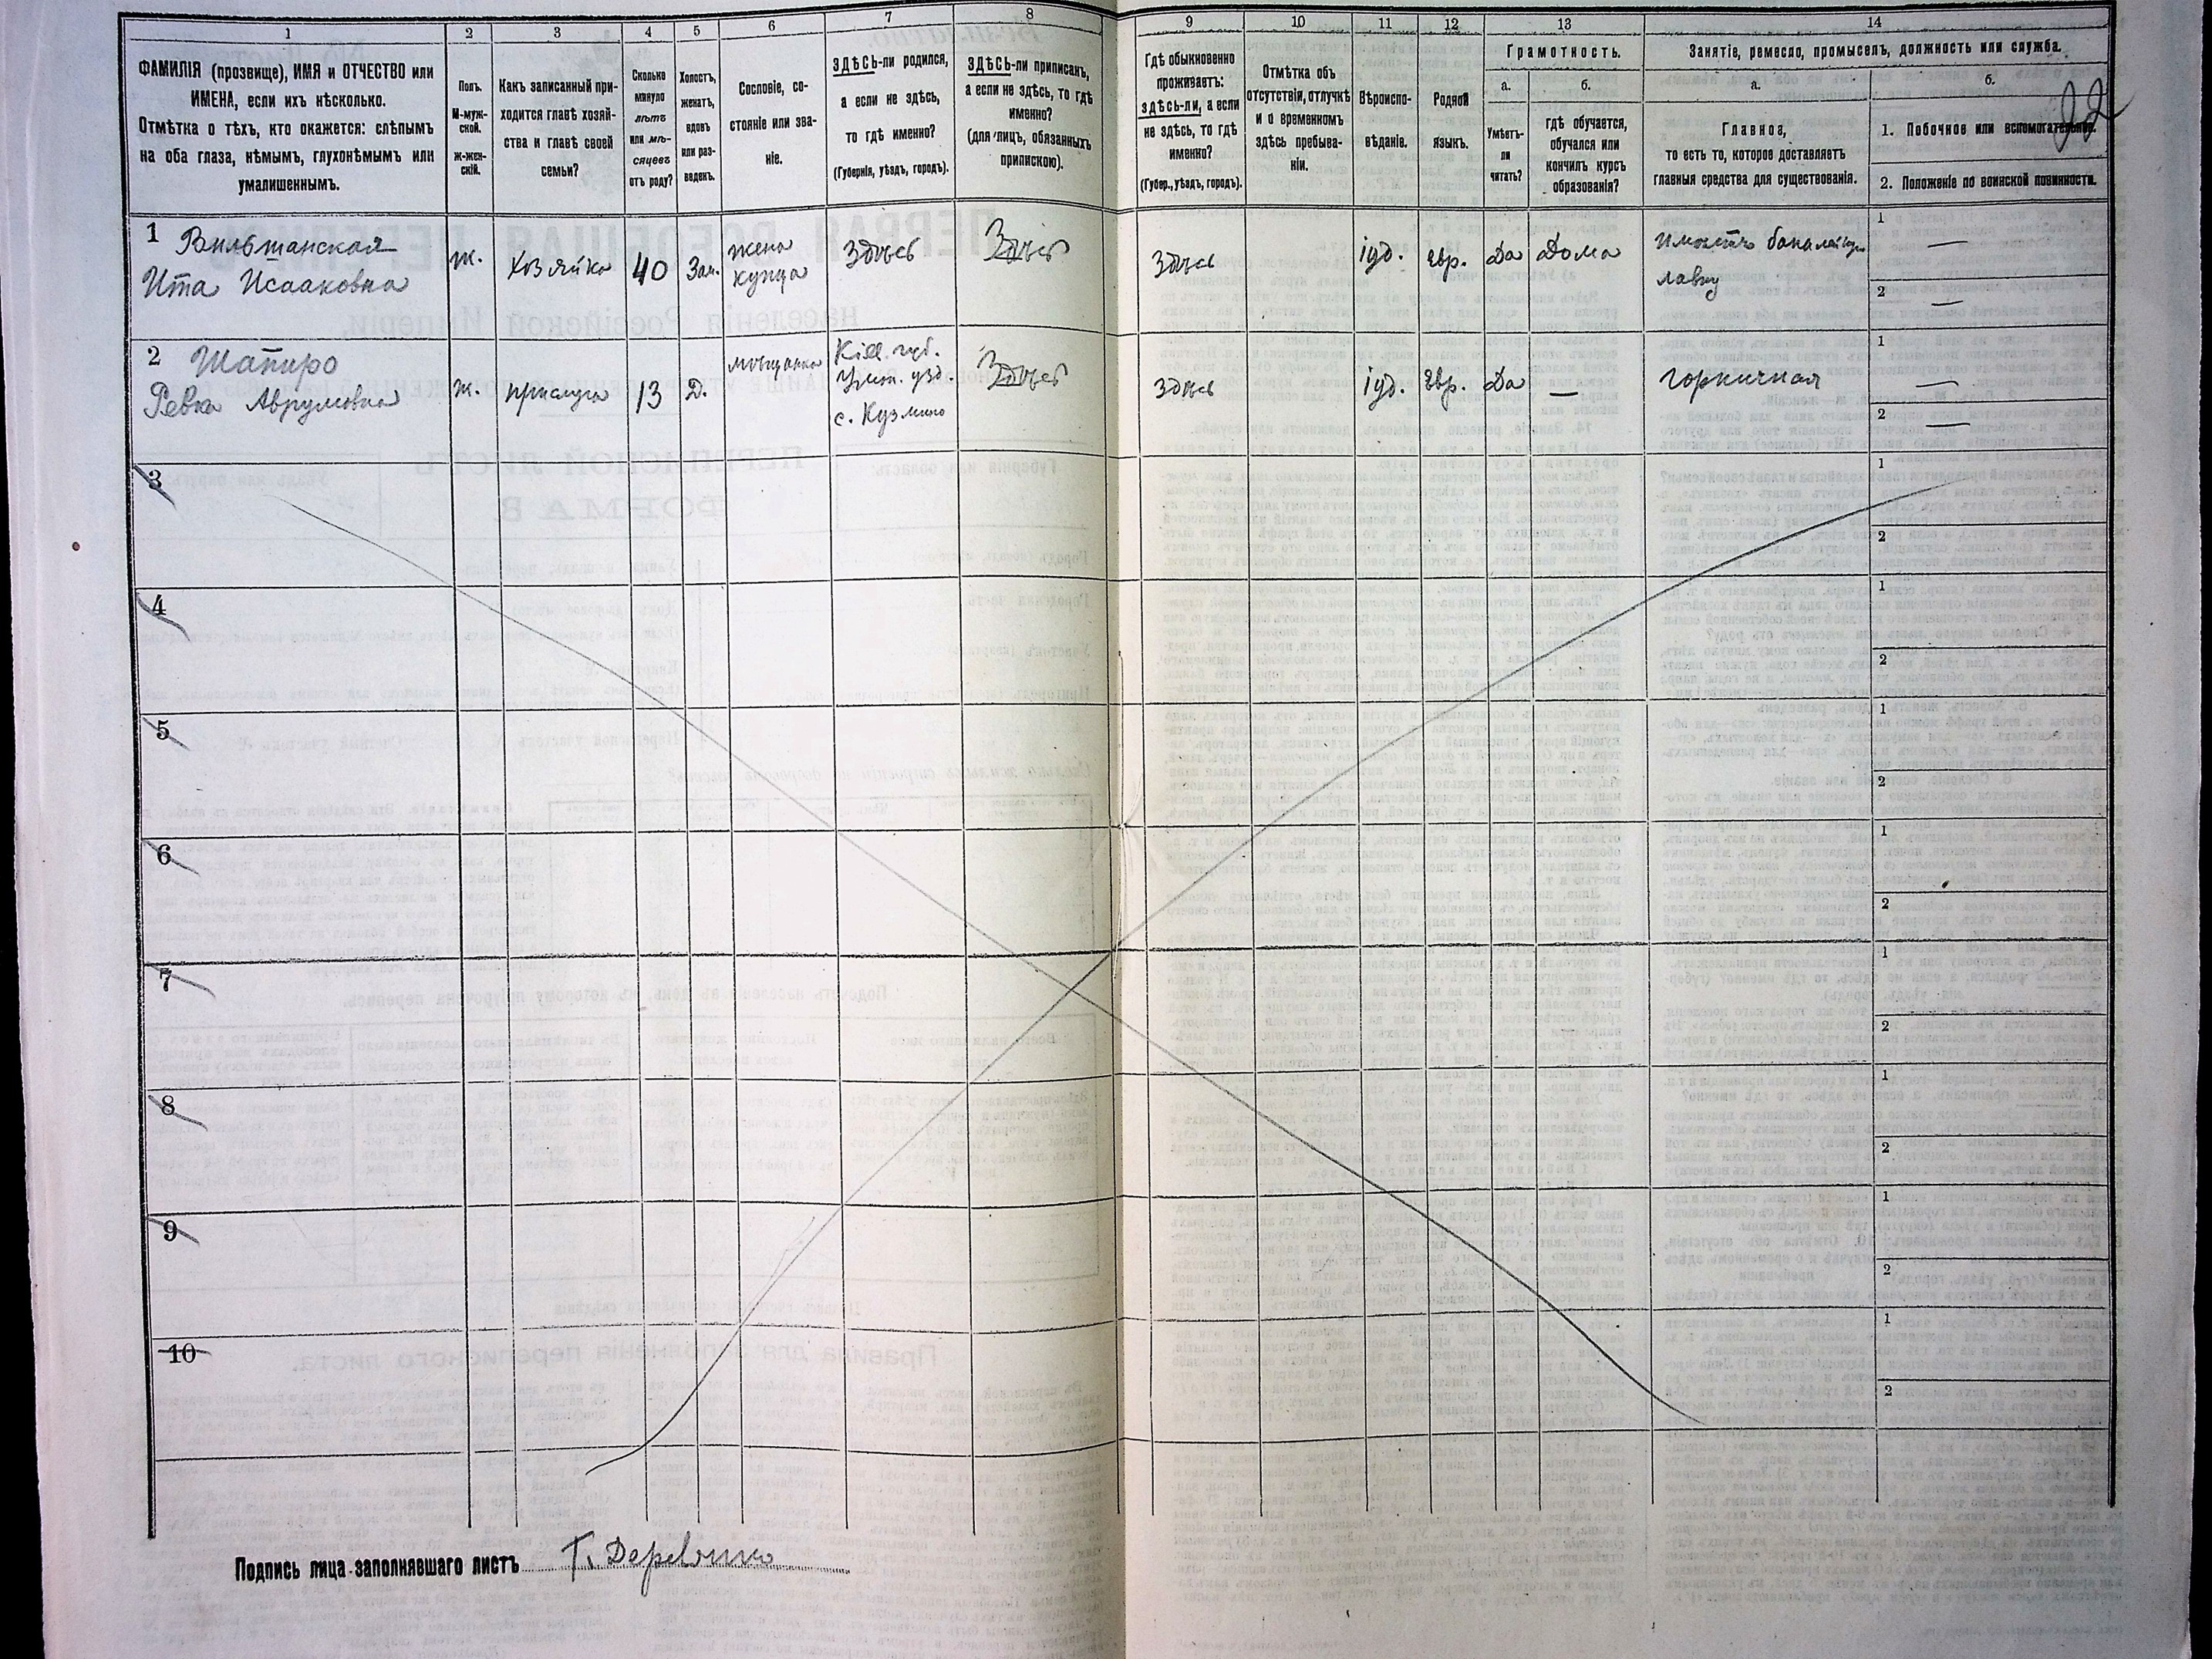 1 2 3 4 5 6 7 8 9 10 11 12 13 14
ФАМИЛІЯ (прозвище), ИМЯ и ОТЧЕСТВО или
ИМЕНА, если ихъ нѣсколько.
Отмѣтка о тѣхъ, кто окажется: слѣпымъ
на оба глаза, нѣмымъ, глухонѣмымъ или
умалишеннымъ.
Полъ.
М-муж-
ской.
ж-жен-
скій.
Какъ записанный при-
ходится главѣ хозяй-
ства и главѣ своей
семьи?
Сколько
минуло
лѣтъ
или мѣ-
сяцевъ
отъ роду?
Холостъ,
женатъ,
вдовъ
или раз-
веденъ.
Сословіе, со-
стояніе или зва-
ніе.
ЗДѢСЬ-ли родился,
а если не здѣсь,
то гдѣ именно?
(Губернія, уѣздъ, городъ).
ЗДѢСЬ-ли приписанъ,
а если не здѣсь, то гдѣ
именно?
(для лицъ, обязанныхъ
припискою).
Гдѣ обыкновенно
проживаетъ:
здѣсь-ли, а если
не здѣсь, то гдѣ
именно?
(Губер., уѣздъ, городъ).
Отмѣтка объ
отсутствіи, отлучкѣ
и о временномъ
здѣсь пребыва-
ніи.
Вѣроиспо-
вѣданіе.
Родной
языкъ.
Грамотность.
а.
Умѣетъ-
ли
читать?
б.
гдѣ обучается,
обучался или
кончилъ курсъ
образованія?
Занятіе, ремесло, промыселъ, должность или служба.
а.
Главное,
то есть то, которое доставляетъ
главныя средства для существованія.
б.
1. Побочное или вспомогательное.
2. Положеніе по воинской повинности.
1 Вильшанская
Ита Исааковна
ж.
Хозяйка
40
Зам.
жена
купца
Здѣсь
Здѣсь
Здѣсь
іуд.
евр.
Да
Дома
имѣетъ бакалейную
лавку
1 —
2 —
2 Шапиро
Ревка Аврумовна
ж.
прислуга
13
Д.
мѣщанка
Кіев. губ.
с. Кузмино
Здѣсь
Здѣсь
іуд.
Евр.
Да
—
горничная
1 —
2 —
3
1
2
4
1
2
5
1
2
6
1
2
7
1
2
8
1
2
9
1
2
10
1
2
Подпись лица заполнявшаго листъ Т. Деревянко